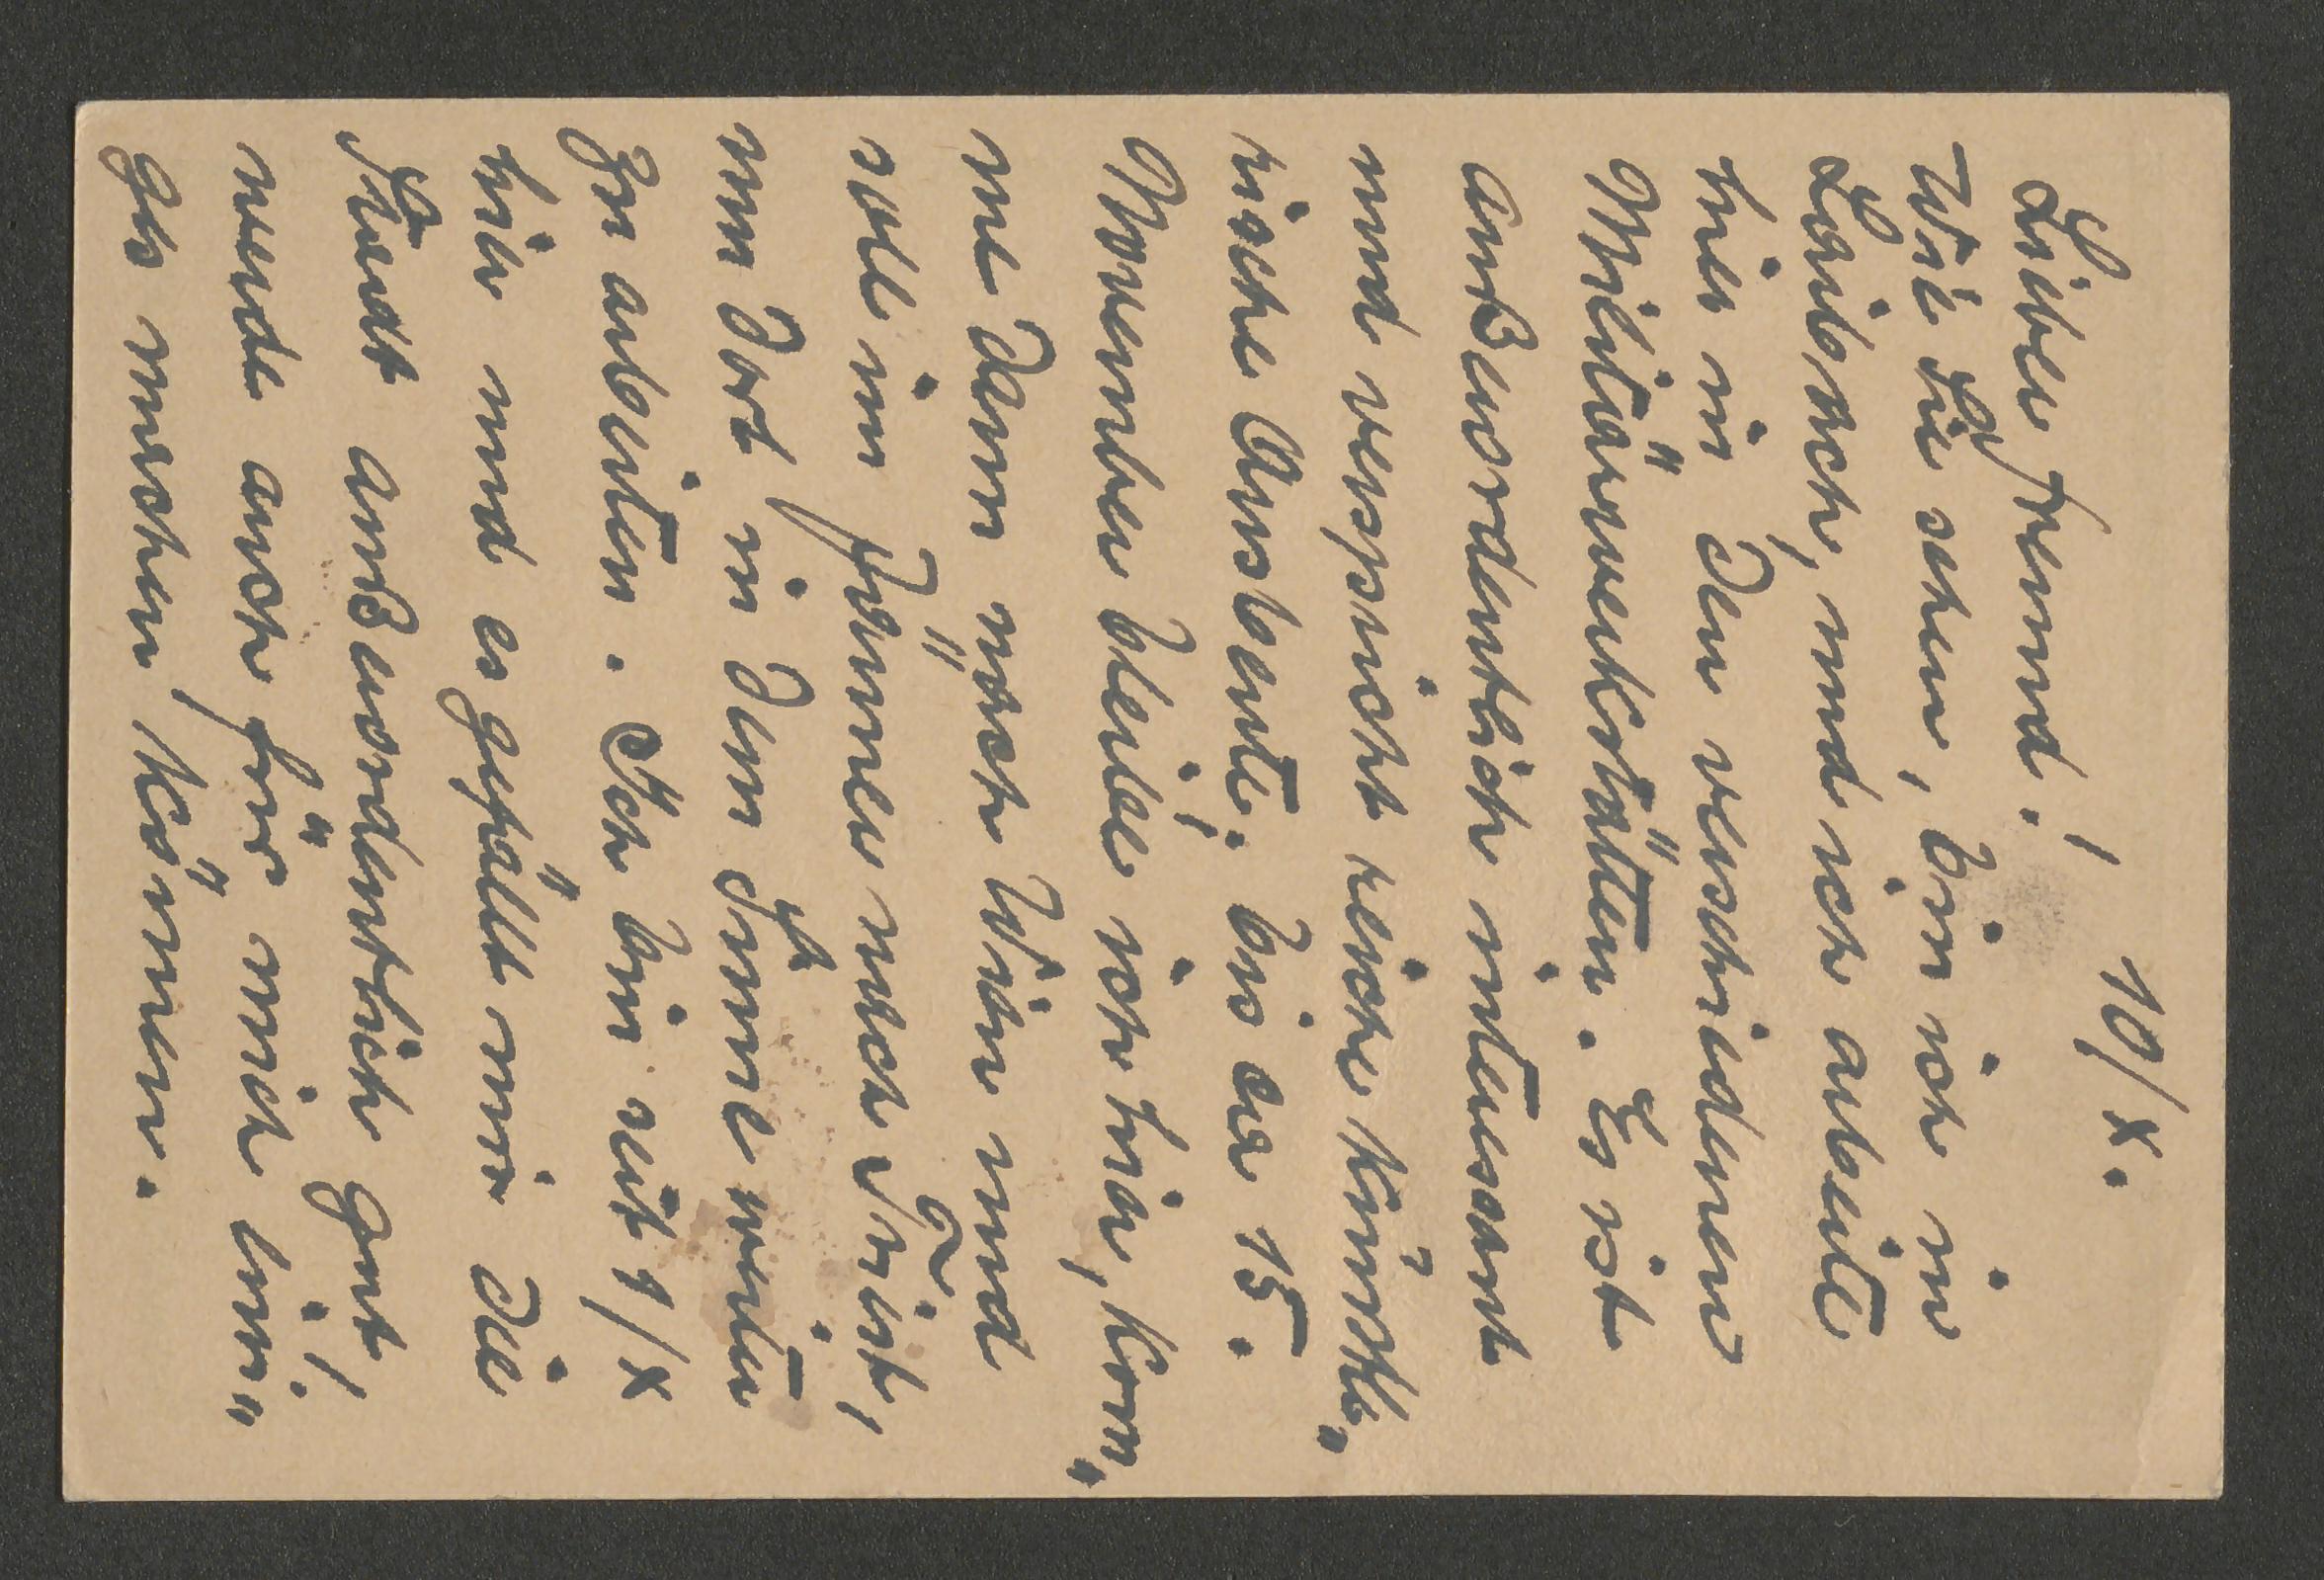 Lieber Freund! 10/x.
Wie Sie sehen, bin ich in
Laibach, und ich arbeite
hier in den verschiedenen
Militärwerkstätten. Es ist
außerordentlich interesant
und verspricht reiche künstle„
rische Ausbeute. Bis ca 15.
November bleibe ich hier, kom„
me dann nach Wien und
soll im Jänner nach Triest,
um dort in dem Sinne weiter
zu arbeiten. Ich bin seit 1/x
hier und es gefällt mir die
Stadt außerordentlich gut!
werde auch für mich eini„
ges machen können.